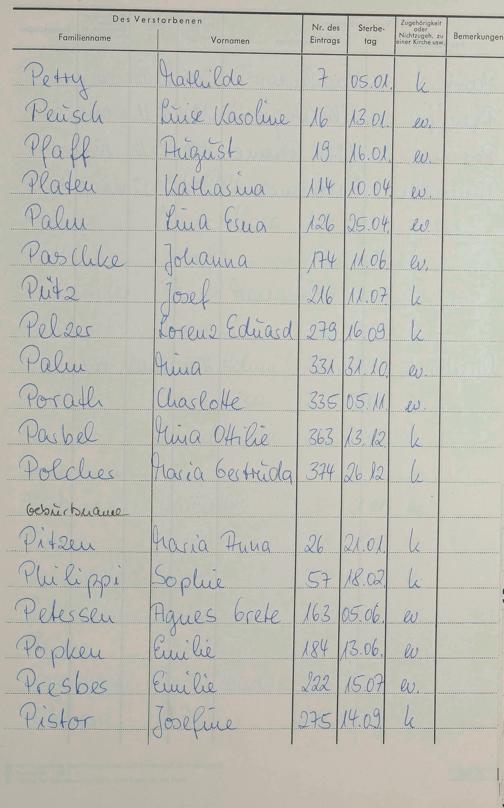 Des Verstorbenen
Familienname Vornamen Nr. des Eintrags Sterbe-tag Zugehörigkeit oder Nichtzugeh. zu einer Kirche usw. Bemerkungen
Petry Mathilde 7 05.01. k
Peusch Luise Karoline 16 13.01. ev.
Pfaff August 19 16.01. ev.
Platen Katharina 114 10.04 ev.
Palm Lina Erna 126 25.04. ev
Paschke Johanna 174 11.06 ev.
Pütz Josef 216 11.07 k
Pelzer Lorenz Eduard 279 16.09 k
Palm Mina 331 31.10. ev.
Porath Charlotte 335 05.11. ev.
Parbel Mina Ottilie 363 13.12 k
Polcher Maria Gertruda 374 26.12 k
Geburtsname
Pitzen Maria Anna 26 21.01. k
Philippi Sophie 57 18.02 k
Petersen Agnes Grete 163 05.06. ev
Popken Emilie 184 13.06. ev
Presber Emilie 222 15.07 ev.
Pistor Josefine 275 14.09 k